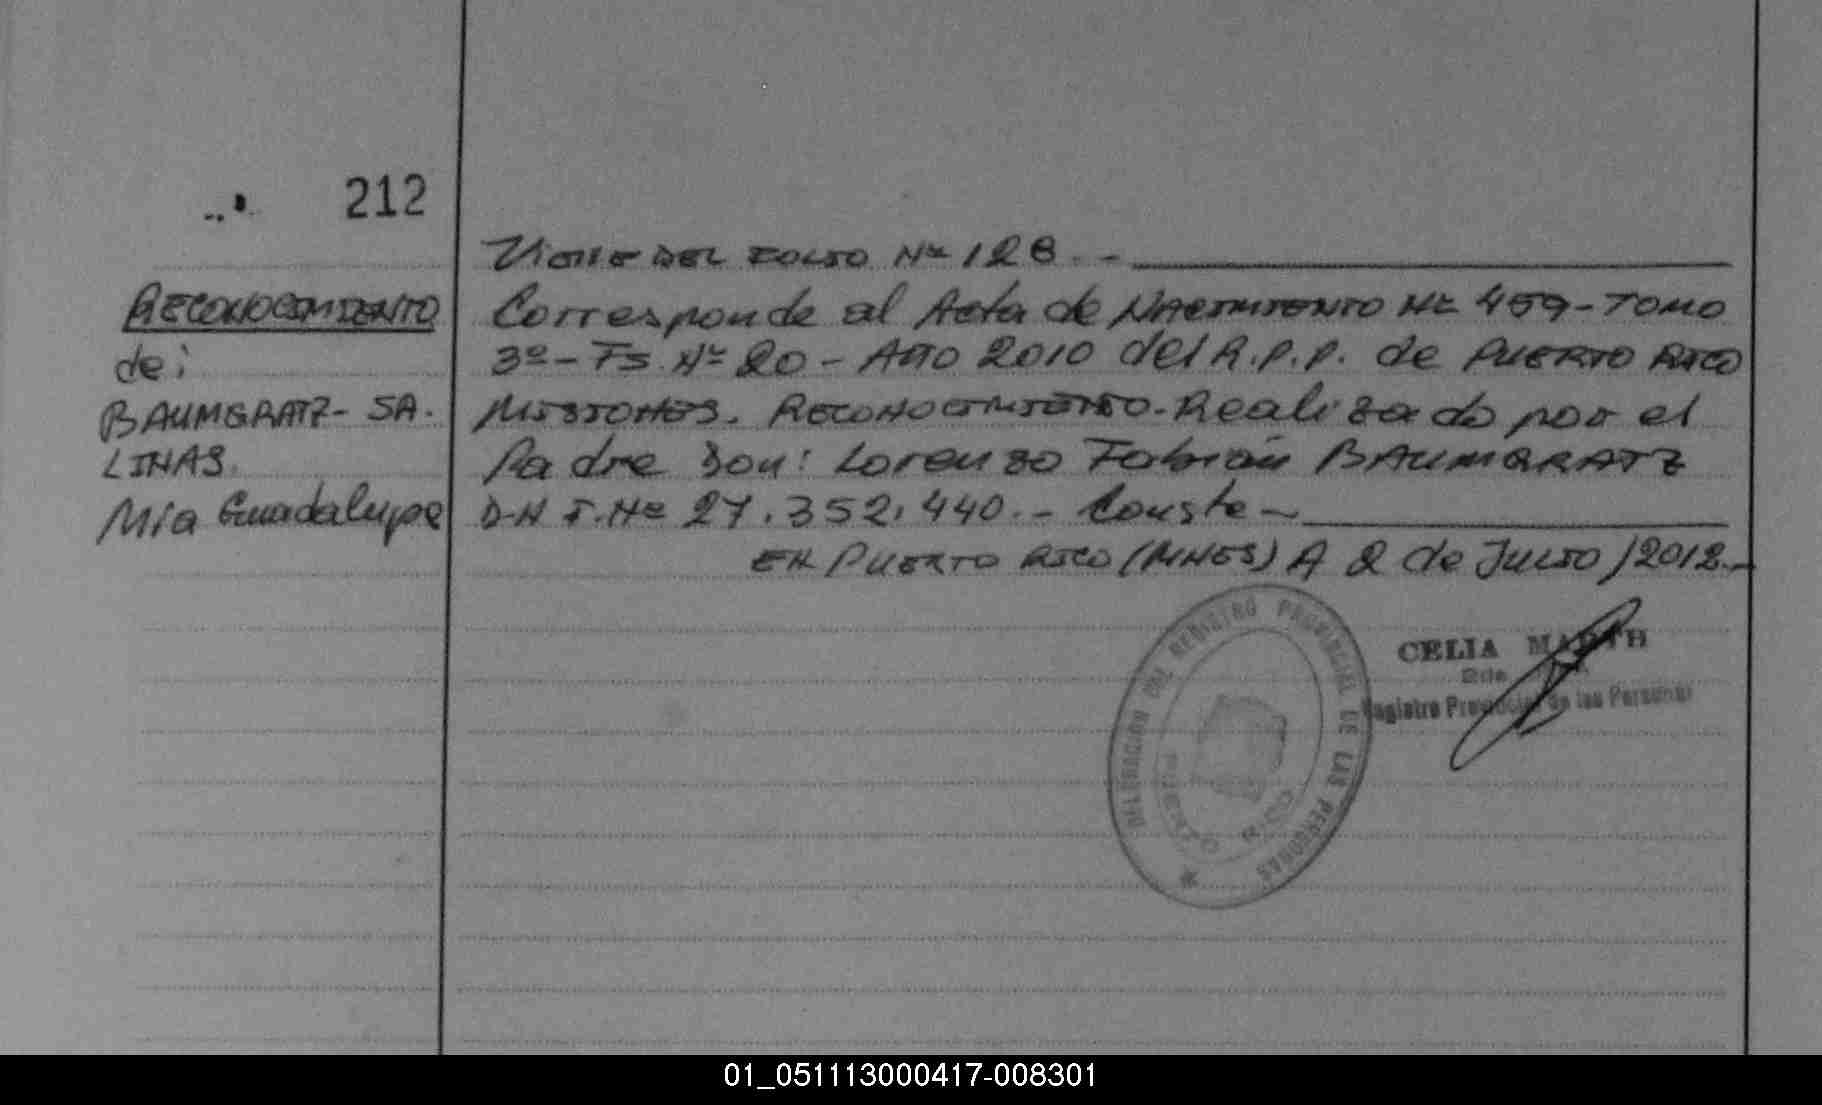 212
Viene DEL FOLIO Nº 128.-
RECONOCIMIENTO
de:
BAUMGRATZ- SA.
LINAS
Mía Guadalupe
Corresponde al Acta de NACIMIENTO Nº 459-TOMO
3º-Fs. Nº 20 - AÑO 2010 del R.P.P. de PUERTO RICO
MISIONES. RECONOCIMIENTO-Realizado por el
Padre Don: Lorenzo Fabián BAUMGRATZ
D.N.I. Nº 27.352.440.- Conste-
EN PUERTO RICO (MNES) A 2 de JULIO/2012.-
DELEGACION DEL REGISTRO PROVINCIAL DE LAS PERSONAS
PUERTO RICO
CELIA MARTH
Registro Provincial de las Personas
01_051113000417-008301